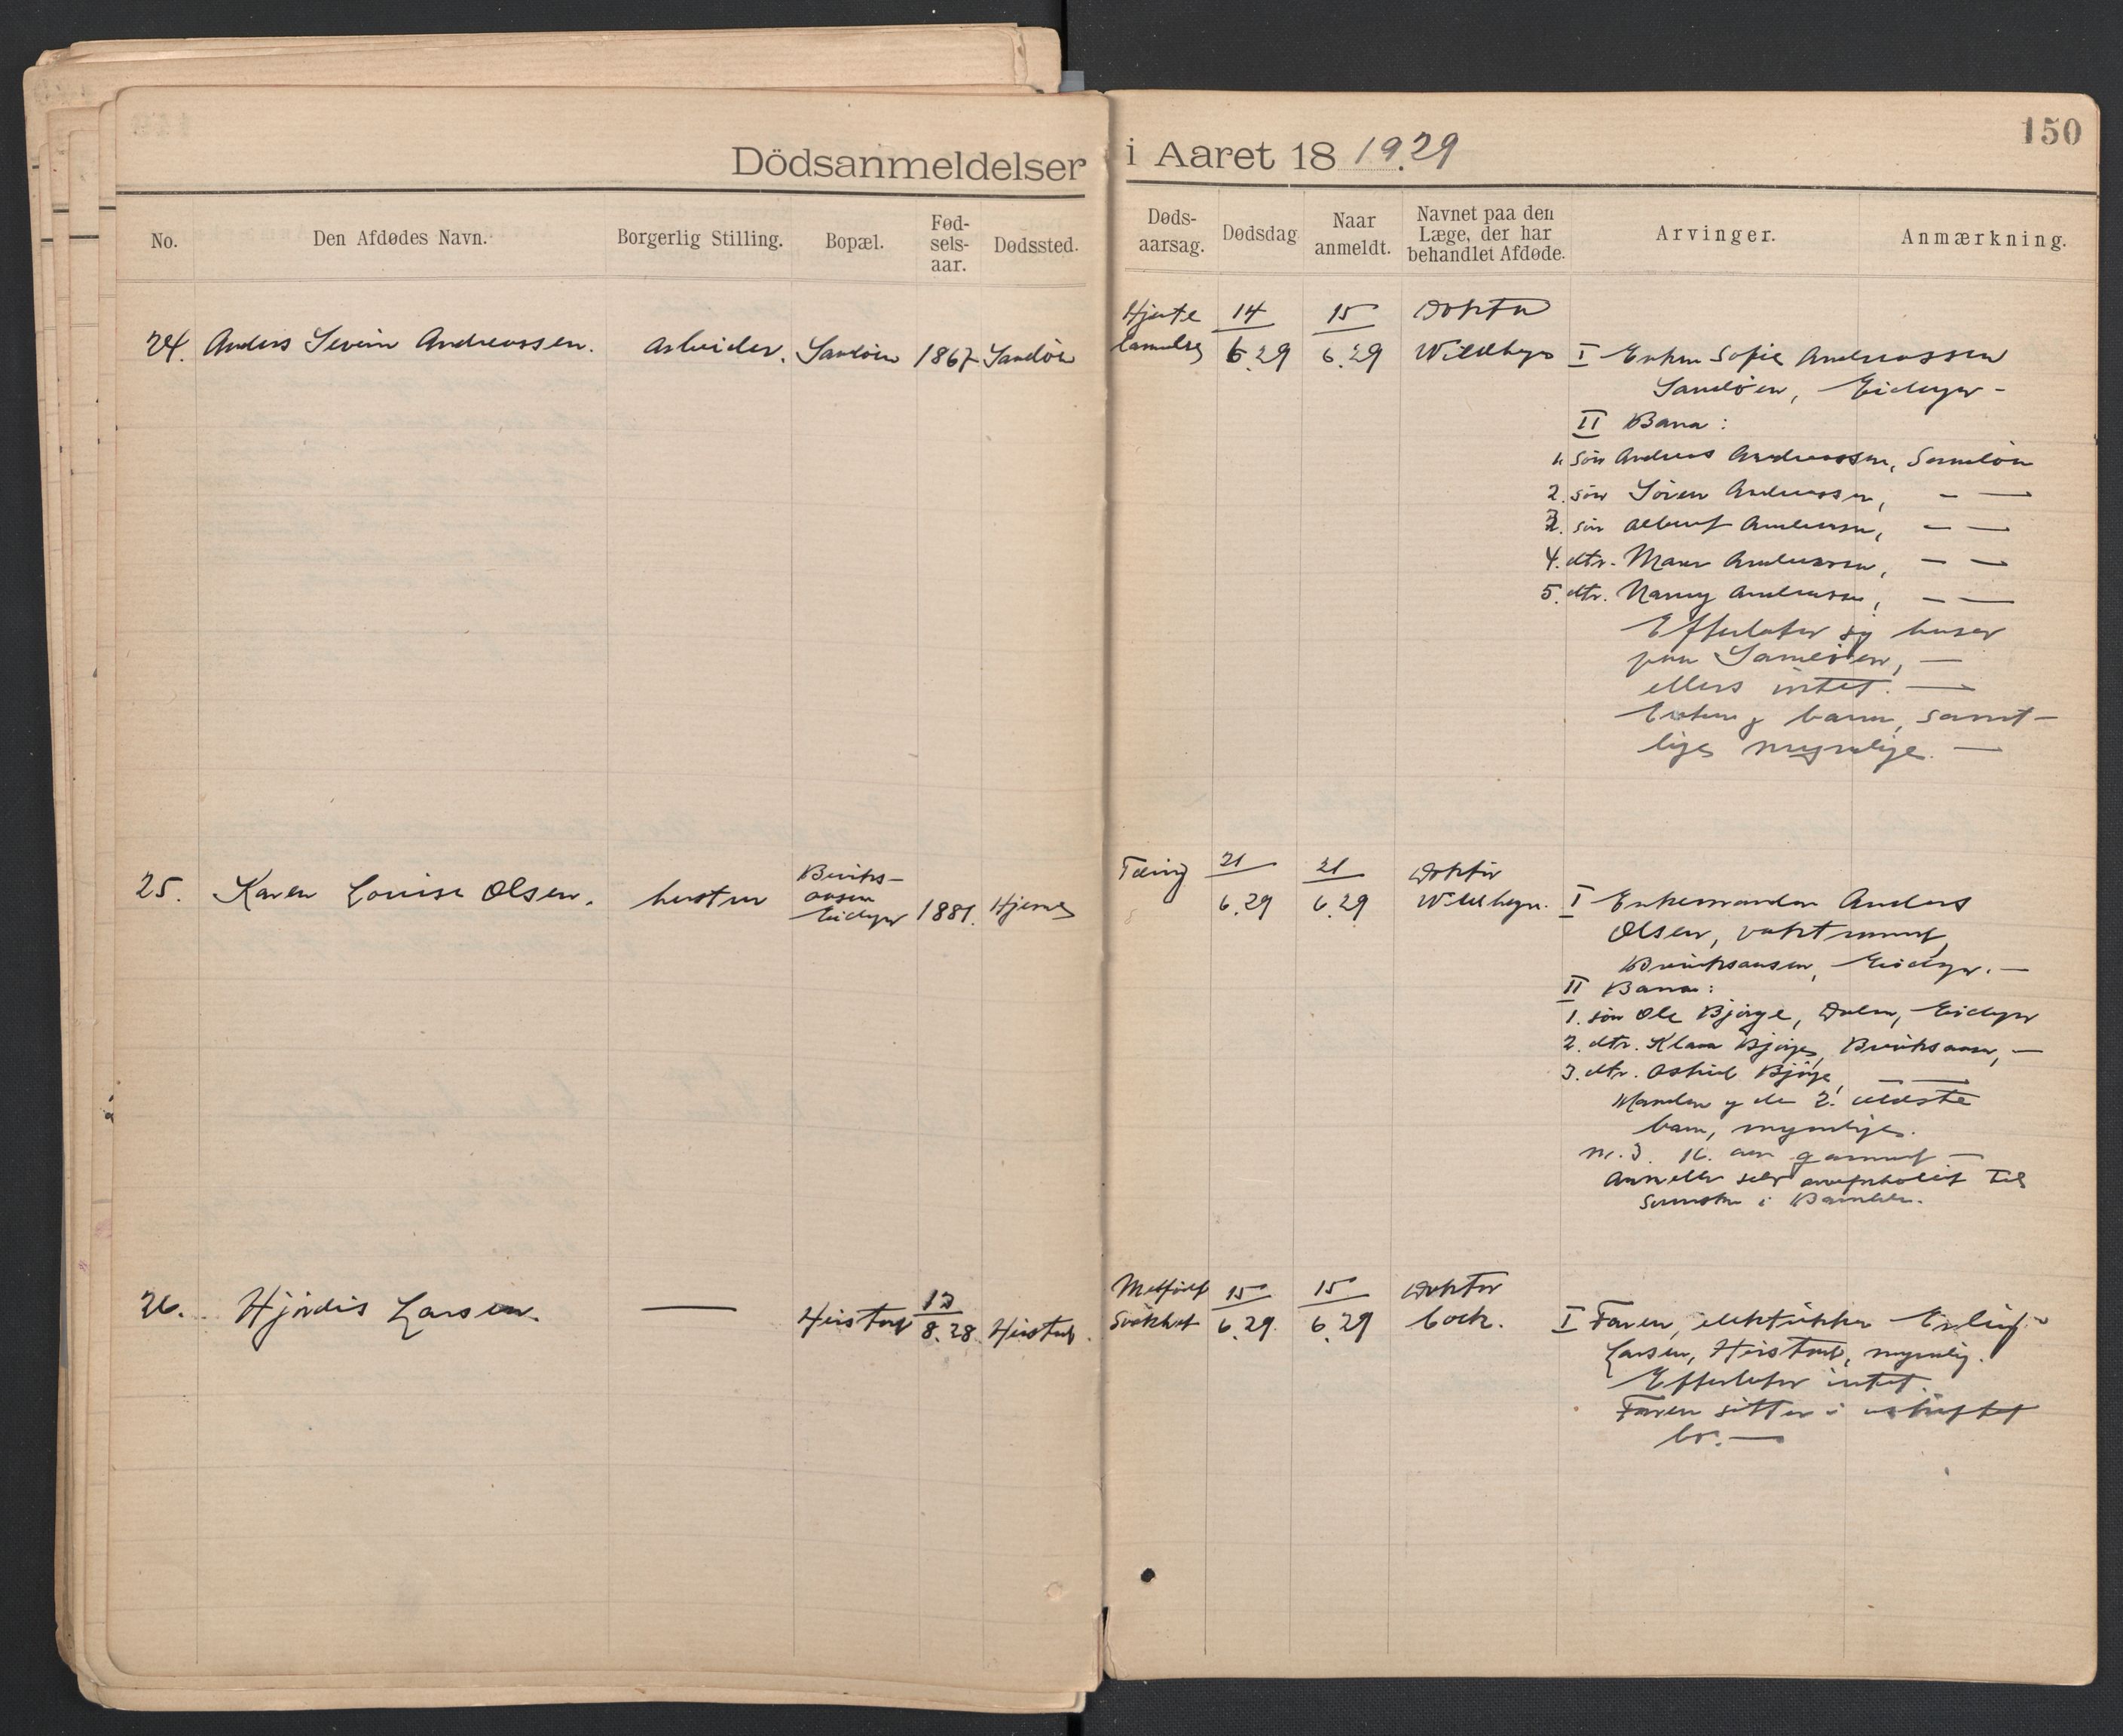 150
Dödsanmeldelser i Aaret 18 19.29
No.
Den Afdødes Navn.
Borgerlig Stilling.
Bopæl.
Fød-
sels-
aar.
Dødssted.
Døds-
aarsag.
Dødsdag
Naar
anmeldt.
Navnet paa den
Læge, der har
behandlet Afdøde.
Arvinger.
Anmærkning.
24. Anders Severin Andreassen. arbeider. Sandöen 1867 Sandöen
Hjerte
lammelse
14
6.29
15
6.29
Doktor
I Enken Sofie Andreassen
Sandöen, Eidanger -
II Barn :
1. sön Andreas Andreassen, Sandöen
2. sön Sören Andreassen, - —
3. sön Albert Andreassen, - —
4. dtr. Andreassen, - —
5. dtr. Nanny Andreassen, - —
Efterlater sig huser
paa Sandöen, —
ellers intet. —
Enken og barn, samt-
lige myndige. —
25. Karen Louise Olsen. hustru
Eidanger
1881. Hjemme
Tæring
21
6.29
21
6.29
Doktor
I Enkemanden Anders
Olsen, vaktmand,
Eidanger. —
II Barn :
1. sön Ole Björge, Dalen, Eidanger
2. dtr. Klara Bjørge, —
3. dtr. Astrid Bjørge, — —
Manden og de 2. ældste
barn, myndige.
nr. 3. 16. aar gammel —
Anmelder selv til
i Bamble.
26. Hjördis Larsen. — Heistad
17
8.28.
Heistad.
Medfödt
Svakhet
15
6.29.
15
6.29
Doktor
Cock.
I Faren, Erling
Larsen, Heistad, myndig.
Efterlater intet.
Faren sitter i uskiftet
bo. —